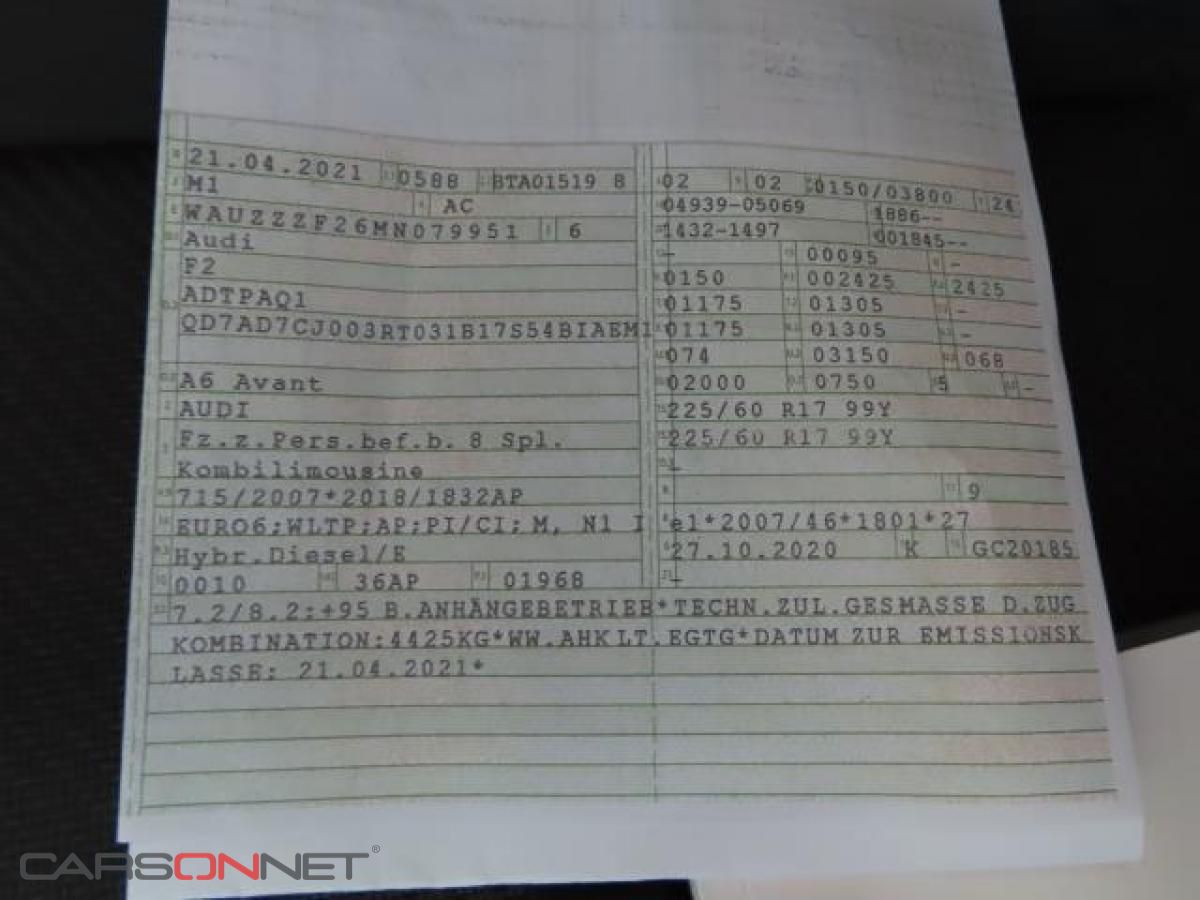 21.04.2021 0588 BTA01519 8
M1 AC
WAUZZZF26MN079951 6
Audi
F2
ADTPAQ1
QD7AD7CJ003RT031B17S54BIAEM1
A6 Avant
AUDI
Fz.z.Pers.bef.b. 8 Spl.
Kombilimousine
715/2007*2018/1832AP
EURO6;WLTP;AP;PI/CI; M, N1 I
Hybr.Diesel/E
0010 36AP 01968
02 02 0150/03800 24
04939-05069 1886--
1432-1497 001845--
- 00095 -
0150 002425 2425
01175 01305 -
01175 01305 -
074 03150 068
02000 0750 5 -
225/60 R17 99Y
225/60 R17 99Y
-
9
e1*2007/46*1801*27
27.10.2020 K GC20185
-
7.2/8.2:+95 B.ANHÄNGEBETRIEB*TECHN.ZUL.GESMASSE D.ZUG
KOMBINATION:4425KG*WW.AHK LT.EGTG*DATUM ZUR EMISSIONSK
LASSE: 21.04.2021*
CARSONNET®